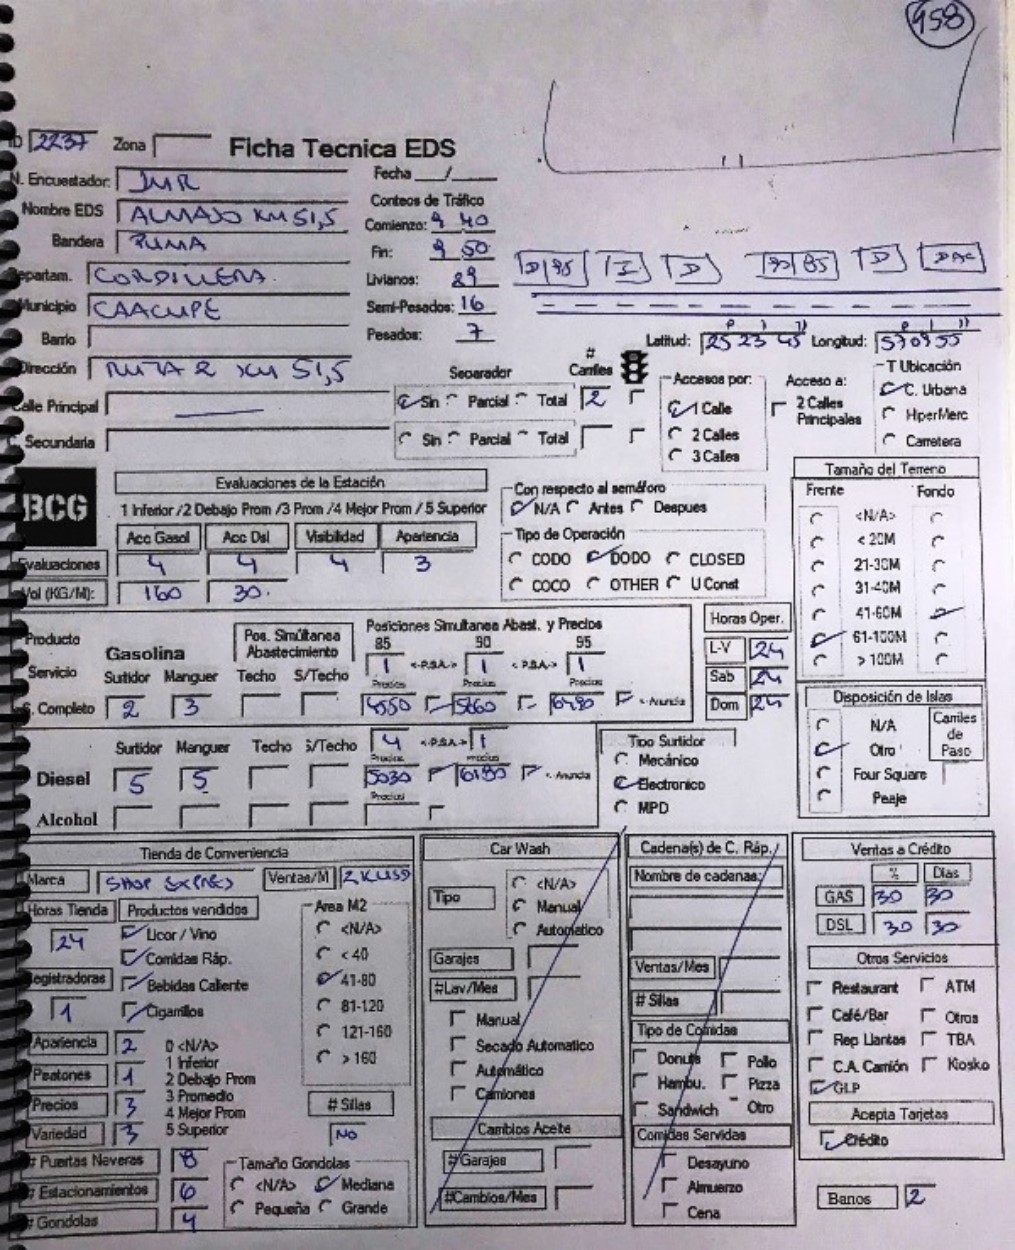 958
ID 2237 Zona Ficha Tecnica EDS
N. Encuestador: JMR Fecha __/__
Nombre EDS ALMAJO KM 51,5 Conteos de Tráfico
Comienzo: 9 40
Bandera PUMA Fin: 9 50
Departam. CORDILLERA Livianos: 89
Municipio CAACUPE Semi-Pesados: 16
Barrio Pesados: 7
D/95 I D 90/85 D DAC
Latitud: 25 23 45 Longitud: 570955
Dirección RUTA 2 KM 51,5
Separador # Carriles
Calle Principal Sin Parcial Total 2
C. Secundaria Sin Parcial Total
Accesos por:
1 Calle
2 Calles
3 Calles
Acceso a:
2 Calles Principales
T Ubicación
C. Urbana
HiperMerc
Carretera
BCG
Evaluaciones de la Estación
1 Inferior /2 Debajo Prom /3 Prom /4 Mejor Prom /5 Superior
Acc Gasol Acc Dsl Visibilidad Apariencia
Evaluaciones 4 4 4 3
Vol (KG/M): 160 30.
Con respecto al semáforo
N/A Antes Despues
Tipo de Operación
CODO DODO CLOSED
COCO OTHER U Const
Tamaño del Terreno
Frente Fondo
<N/A>
< 20M
21-30M
31-40M
41-60M
61-100M
> 100M
Producto Servicio Gasolina
Pos. Simúltanea Abastecimiento
Posiciones Simultanea Abast. y Precios
85 90 95
1 <-P.S.A.-> 1 <-P.S.A.-> 1
Surtidor Manguer Techo S/Techo Precios Precios Precios
S. Completo 2 3 4550 5660 6490 <- Anuncia
Horas Oper.
L-V 24
Sab 24
Dom 24
Surtidor Manguer Techo S/Techo 4 <-P.S.A.-> 1
Precios Precios
Diesel 5 5 5030 6180 <- Anuncia
Precios
Alcohol
Tipo Surtidor
Mecánico
Electronico
MPD
Disposición de Islas
N/A
Otro
Four Square
Peaje
Carriles de Paso
Tienda de Conveniencia
Marca SHOP EXPRES Ventas/M 2 KUSD
Horas Tienda 24
Productos vendidos
Licor / Vino
Comidas Ráp.
Bebidas Caliente
Cigarrillos
Registradoras 1
Area M2
<N/A>
< 40
41-80
81-120
121-160
> 160
Apariencia 2
Peatones 1
Precios 3
Variedad 3
0 <N/A>
1 Inferior
2 Debajo Prom
3 Promedio
4 Mejor Prom
5 Superior
# Sillas
NO
# Puertas Neveras 8
# Estacionamientos 6
# Gondolas 4
Tamaño Gondolas
<N/A> Mediana
Pequeña Grande
Car Wash
Tipo
<N/A>
Manual
Automatico
Garajes
#Lav/Mes
Manual
Secado Automatico
Automático
Camiones
Cambios Aceite
# Garajes
#Cambios/Mes
Cadena(s) de C. Ráp.
Nombre de cadenas:
Ventas/Mes
# Sillas
Tipo de Comidas
Donuts Pollo
Hambu. Pizza
Sandwich Otro
Comidas Servidas
Desayuno
Almuerzo
Cena
Ventas a Crédito
% Días
GAS 30 30
DSL 30 30
Otros Servicios
Restaurant ATM
Café/Bar Otros
Rep Llantas TBA
C.A. Camión Kiosko
GLP
Acepta Tarjetas
Crédito
Banos 2